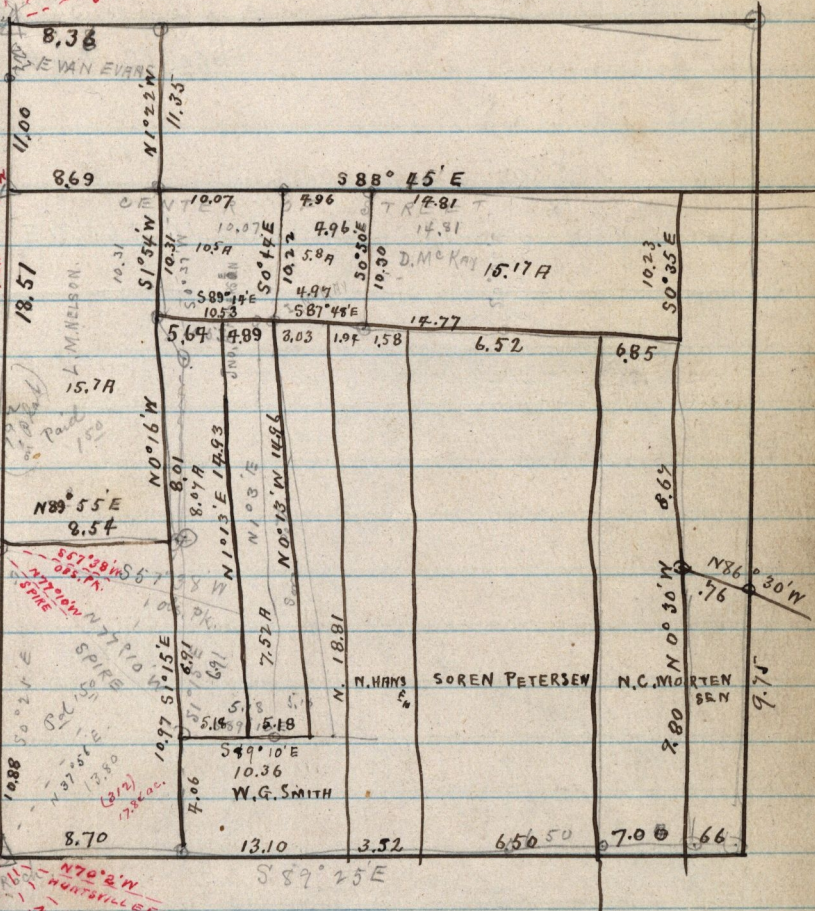 8.36
EVAN EVANS
11.00
N 1° 22' W
11.35
8.69
S 88° 45' E
10.07
4.96
14.81
CENTER STREET
10.07
4.96
14.81
18.51
10.31
S 1° 54' W
10.31
S 0° 37' W
10.5 A
S 0° 44' E
10.22
5.8 A
S 0° 50' E
10.30
D. McKAY
15.17 A
10.23
S 0° 35' E
L.M. NELSON.
S 89° 14' E
10.53
4.97
S 87° 48' E
14.77
5.64
4.89
3.03
1.94
1.58
6.52
6.85
15.7 A
Paid
1.50
N 0° 16' W
8.01
8.07 A
N 1° 13' E 14.93
N 1° 3' E
N 0° 13' W 14.96
8.67
N 89° 55' E
8.54
S 57° 38' W
OBS. PK.
N 77° 10' W
SPIRE
S 57° 38' W
OBS. Pk.
N 77° 10' W
SPIRE
N 86° 30' W
.76
N 0° 30' W
S 0° 25' E
S 1° 15' E
6.91
691
7.52 A
N. 18.81
N. HANSEN
SOREN PETERSEN
N.C. MORTENSEN
9.75
5.18
5.18
5.18
S 89° 10' E
10.36
W.G. SMITH
10.97
4.06
9.80
N 37° 56' E
13.80
(212)
17.86 ac.
10.88
8.70
13.10
3.52
6.50
50
7.00
66
S 89° 25' E
N 70° 2' W
HUNTSVILLE